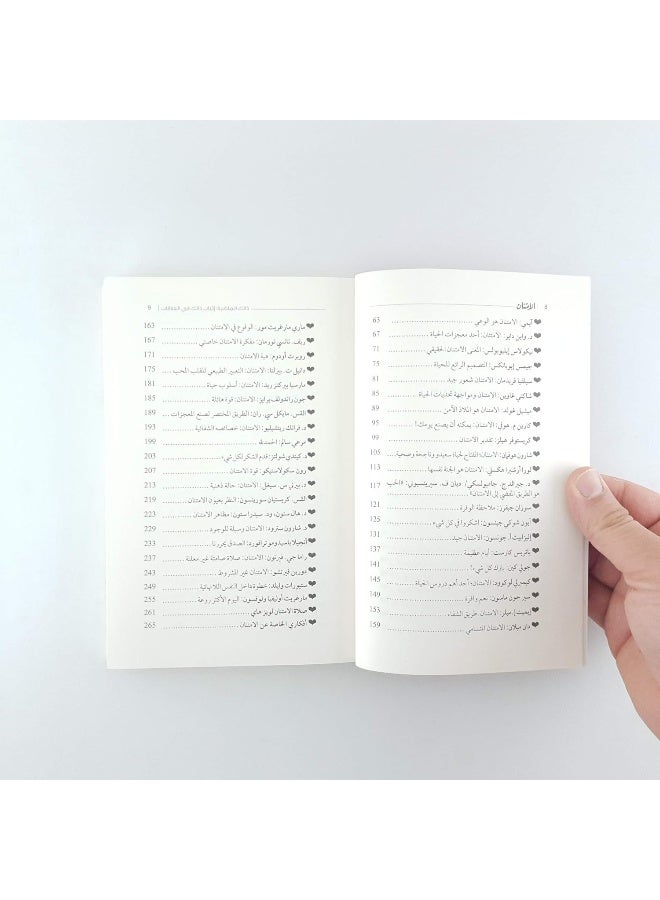 8 الامتنان
❤ آيمي: الامتنان هو الوعي ........ 63
❤ د. واين داير: الامتنان: أحد معجزات الحياة ........ 67
❤ نيكولاس: المعنى الحقيقي ........ 71
❤ جيمس: التصميم الرائع للحياة ........ 75
❤ سيلفيا فريدمان: الامتنان شعور جيد ........ 81
❤ شاكتي غاوين: الامتنان ومواجهة تحديات الحياة ........ 85
❤ ميتشل غولد: الامتنان هو الملاذ الآمن ........ 89
❤ كارين م. هولي: الامتنان: يمكنه أن يصنع يومك! ........ 95
❤ كريستوفر هيلز: تقدير الامتنان ........ 99
❤ شارون هوفمان: الامتنان: المفتاح لحياة سعيدة وناجحة وصحية ........ 105
❤ لورا (أرشيرا) هكسلي: الامتنان هو الجنة نفسها! ........ 113
❤ د. جيرالد ج. جامبولسكي/ ديان ف. سيرينسيوني: «الحب
هو الطريق المفضي إلى الامتنان» ........ 117
❤ سوزان جيفرز: ملاحظة الوفرة ........ 121
❤ جيلسون: اشكروا في كل شيء ........ 125
❤ إليزابيث أ. جونسون: الامتنان جيد ........ 131
❤ باتريس كارست: أيام عظيمة ........ 137
❤ جولي كين: بارك كل شيء! ........ 141
❤ كيمبرلي لوكوود: الامتنان: أحد أهم دروس الحياة ........ 145
❤ سير جون ماسون: نعم وافرة ........ 149
❤ إيميت إ. ميلر: الامتنان: طريق الشفاء ........ 153
❤ دان ميلان: الامتنان انقسامي ........ 159
9
❤ ماري مارغريت مور: الوقوع في الامتنان ........ 163
❤ ريف. نانسي نورمان: مفكرة الامتنان خاصتي ........ 167
❤ روبرت أودوم: هبة الامتنان ........ 171
❤ دانيل ت. بيرلتا: الامتنان: التعبير الطبيعي للقلب المحب ........ 175
❤ مارسيا بيركنز ريد: الامتنان: أسلوب حياة ........ 181
❤ جون راندولف برايز: الامتنان: قوة هائلة ........ 185
❤ القس. مايكل سي. ران: الطريق المختصر لصنع المعجزات ........ 189
❤ د. فرانك ريتشيليو: الامتنان: خصائصه الشفائية ........ 193
❤ سالم: الحمدلله ........ 199
❤ د. كيندي شولتز: قدم الشكر لكل شيء ........ 203
❤ رون سكولاستيكو: قوة الامتنان ........ 207
❤ د. بيرني س. سيغل: الامتنان: حالة ذهنية ........ 213
❤ القس. كريستيان سورينسون: النظر بعيون الامتنان ........ 219
❤ د. هال ستون، ود. سيدرا ستون: مظاهر الامتنان ........ 223
❤ د. شارون سترود: الامتنان وسيلة للوجود ........ 229
❤ أنجيلا باسيدو موترافورد: الصدق يحررنا ........ 233
❤ راما جي. فيرنون: الامتنان: صلاة صامتة غير معلنة ........ 237
❤ دورين فيرتشو: الامتنان غير المشروط ........ 243
❤ ستيوارت وايلد: خطوة داخل النفس اللانهائية ........ 249
❤ مارغريت أوليفيا وولفسون: اليوم الأكثر روعة ........ 255
❤ صلاة الامتنان لويز هاي ........ 261
❤ أفكاري الخاصة عن الامتنان ........ 265